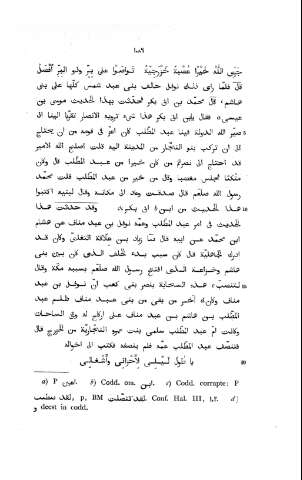 ١٠٨٦
جزى الله خيرا عصبة خزرجية تواصوا على بر وذو البر أفضل
قال فلما رأى ذلك نوفل حالف بنى عبد شمس كلها على بنى
هاشم، قال محمد بن ابى بكر فحدثت بهذا الحديث موسى بن
عيسى فقال يابن ابى بكر هذا شىء ترويه الانصار تقربا الينا اذ
صير الله الدولة فينا عبد المطلب كان اعز فى قومه من ان يحتاج
الى ان تركب بنو النجار من المدينة اليه قلت اصلح الله الامير
قد احتاج الى نصرهم من كان خيرا من عبد المطلب قال وكان
متكئا فجلس مغضبا وقال من خير من عبد المطلب قلت محمد
رسول الله صلعم قال صدقت وعاد الى مكانه وقال لبنيه اكتبوا
هذا الحديث من ابن ابى بكر، وقد حدثت هذا
الحديث فى امر عبد المطلب وعمه نوفل بن عبد مناف عن هشام
ابن محمد عن ابيه قال سا زياد بن علاقة التغلبى وكان قد
ادرك الجاهلية قال كان سبب بدء الحلف الذى كان بين بنى
هاشم وخزاعة الذى افتتح رسول الله صلعم بسببه مكة وقال
لتنصب هذه السحابة بنصر بنى كعب ان نوفل بن عبد
مناف وكان آخر من بقى من بنى عبد مناف ظلم عبد
المطلب بن هاشم بن عبد مناف على اركاح له وهى الساحات
وكانت ام عبد المطلب سلمى بنت عمرو النجارية من الخزرج قال
فتنصف عبد المطلب عمه فلم ينصفه فكتب الى اخواله
يا طول ليلى لأحزانى وأشغالى
a) P b) Codd. om. ابن. c) Codd. corrupte: P
p, BM Conf. Hal. III, ١,٢. d)
و deest in codd.